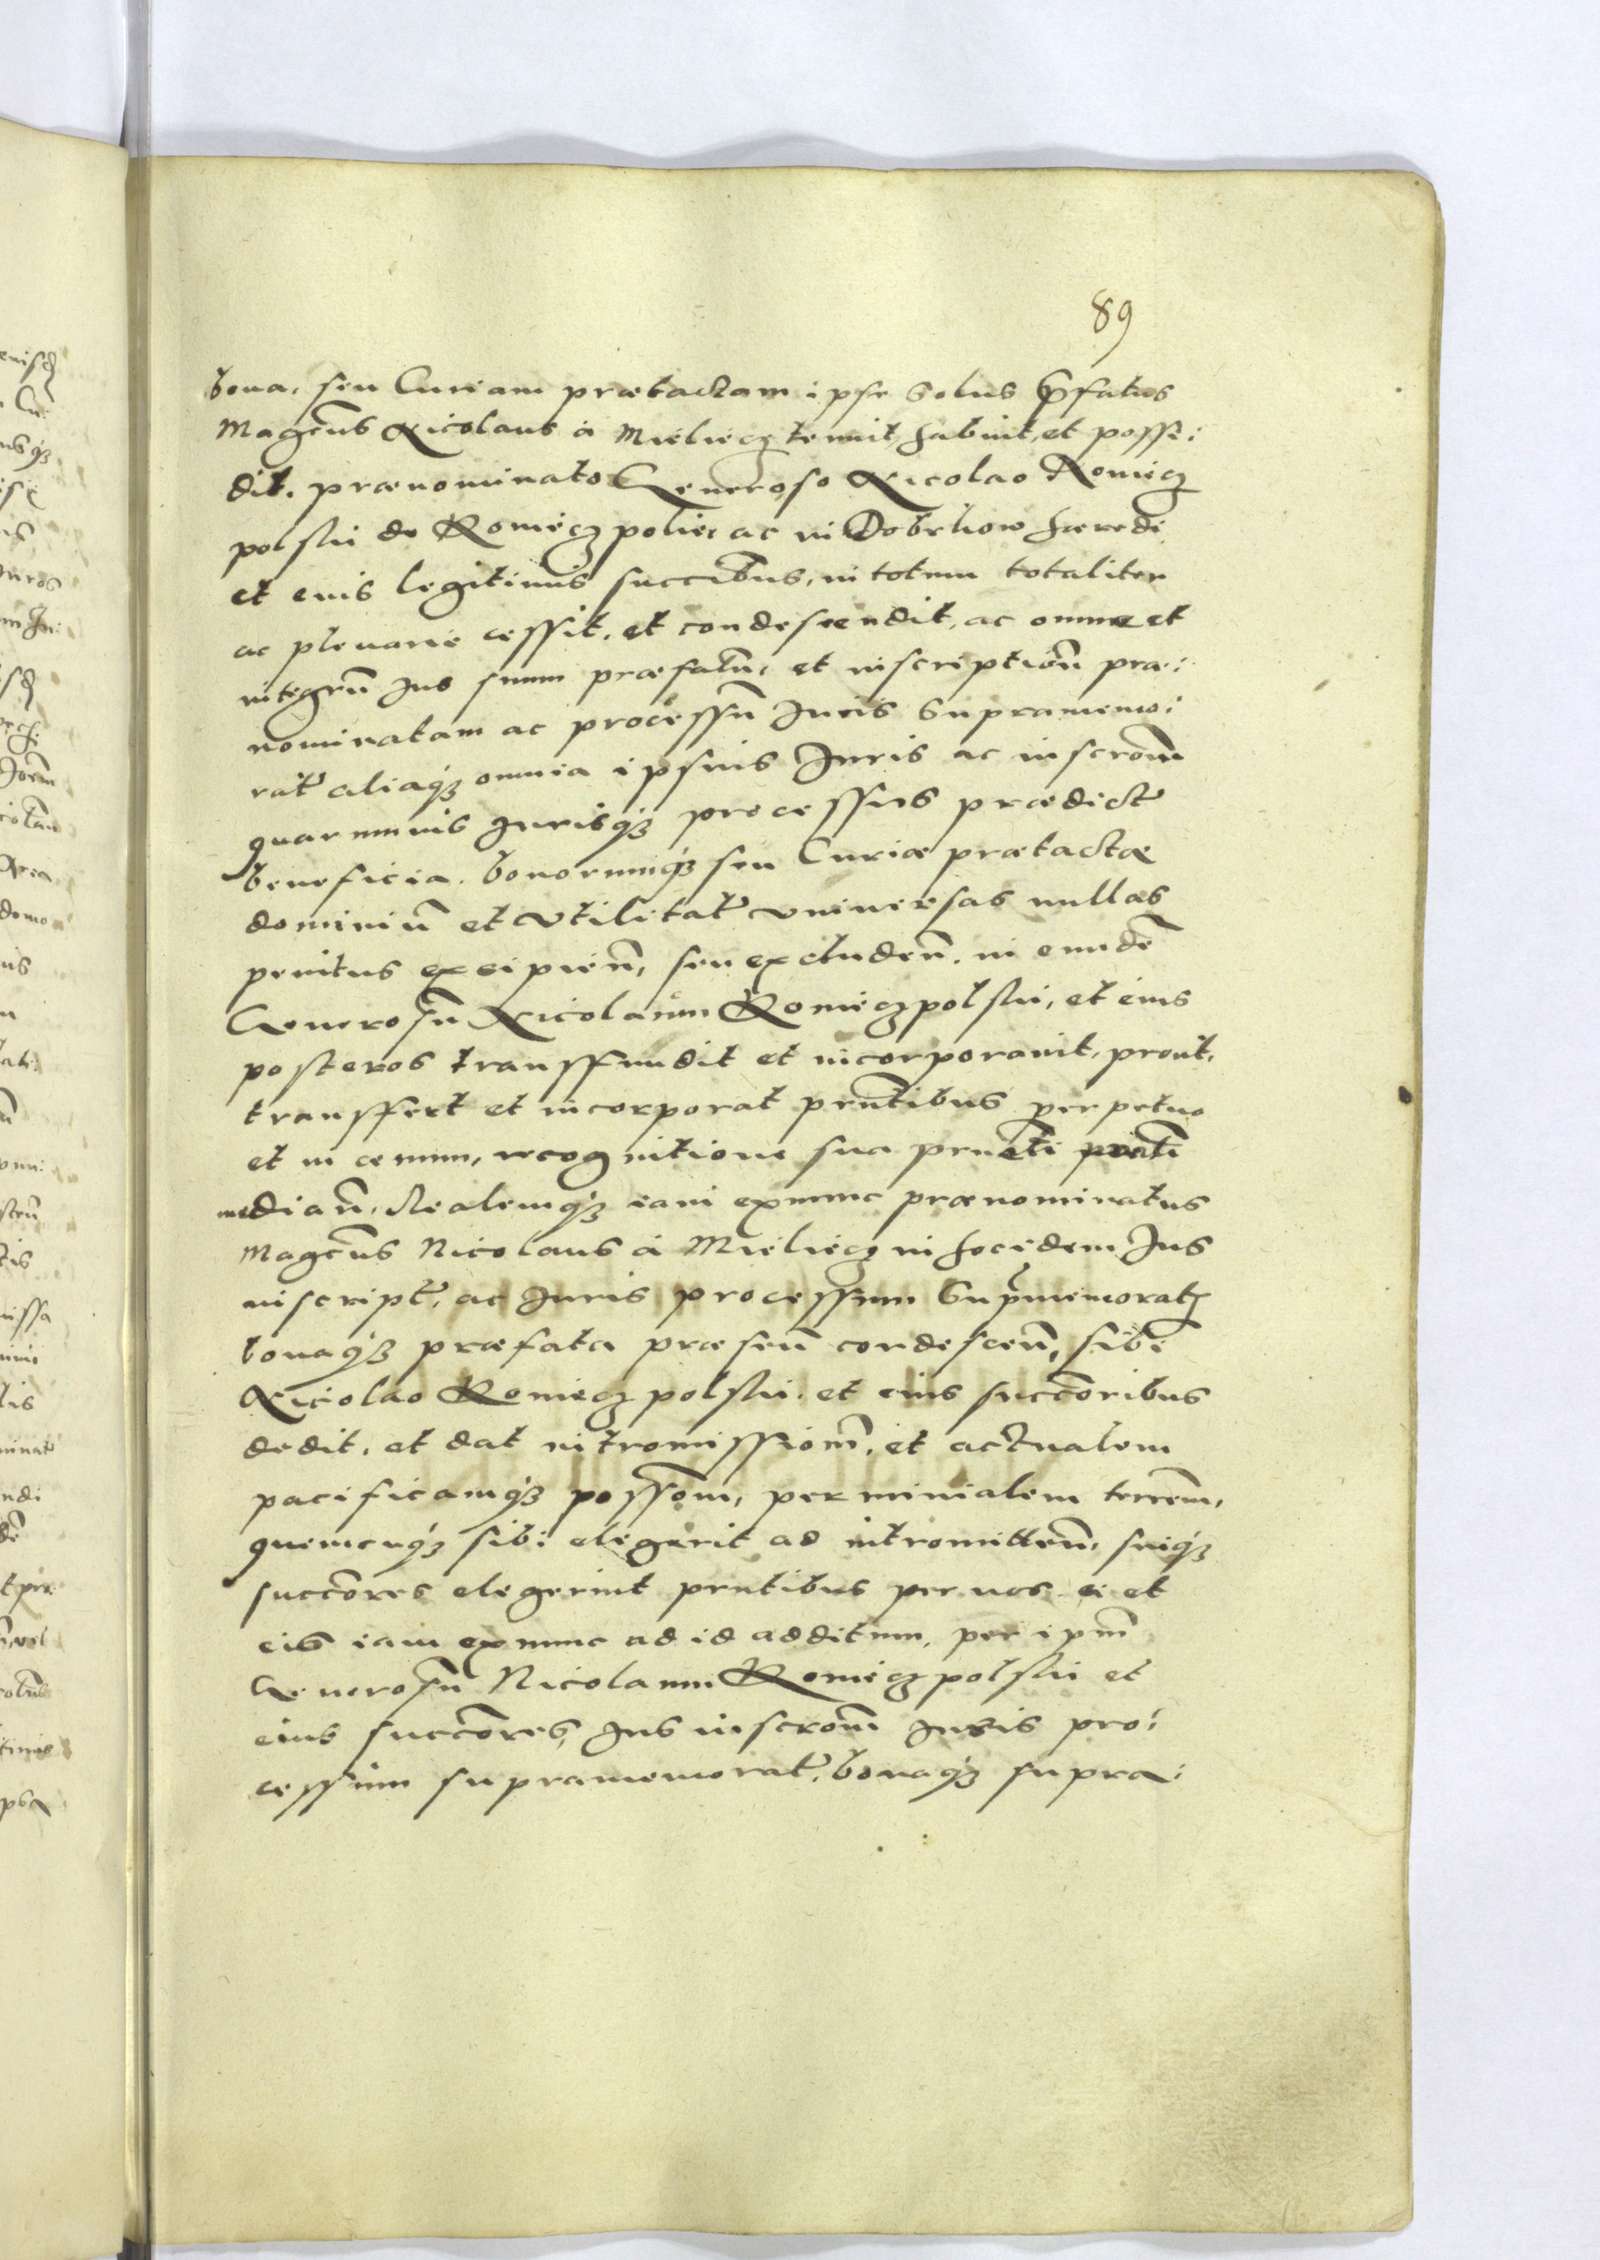 89
bona, seu Curiam prætactam ipse solus p̄fatus
Magcus Nicolaus á Mieliecz tenuit, habuit, et posse:
dit. prænominato Generoso Nicolao Koniecz
polskii de Konieczpolie, ac in Dobrkow hæredi
et euis legitimis succibus, in totum totaliter
ac plenarie cessit, et condescendit, ac omne et
integrū Jus suum præfatū, et inscriptionē præ:
nominatam ac processū Juris supramemo:
rat aliaq3 omnia ipsius Juris ac inscrom
quarumuis Jurisq3 processus prædict
beneficia. bonorumq3 seu Curiæ prætactæ
dominiū et vtilitat vniuersas nullas
penitus excipien, seu excluden. in eundē
Generosū Nicolaum Konieczpolskii, et eius
posteros transffundit et incorporauit, prout,
transffert et incorporat prntibus perpetuo
et in æuum, recognitione sua prnti
median. Realemq3 iam exnunc prænominatus
Magcus Nicolaus á Mieliecz in hocidem Jus
inscript, ac Juris processum sup̄memorat
bonaq3 præfata præsen condescen, sibi
Nicolao Konieczpolskii. et eius succoribus
dedit, et dat intromissiom, et actualem
pacificamq3 possom, per minialem terrem,
quemcuq3 sibi elegerit ad intromitten, suiq3
succores elegerint prntibus per nos ei et
eis iam exnunc ad id additum, per ipm
Generosū Nicolaum Konieczpolskii et
eius succores, Jus inscrom Juris pro:
cessum supramemorat, bonaq3 supra: